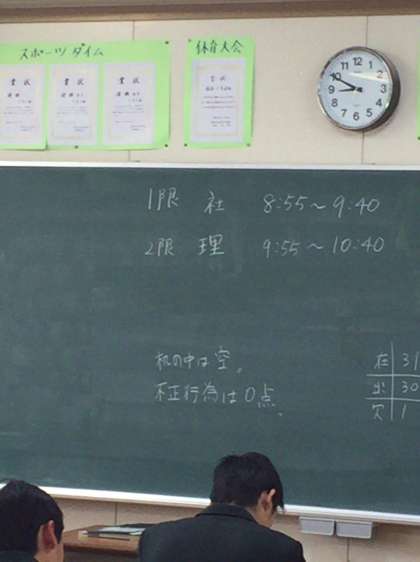 スポーツタイム
体育大会
賞状
賞状
賞状
賞状
1限 社 8:55〜9:40
2限 理 9:55〜10:40
机の中は空。
不正行為は0点。
在 31
出 30
欠 1